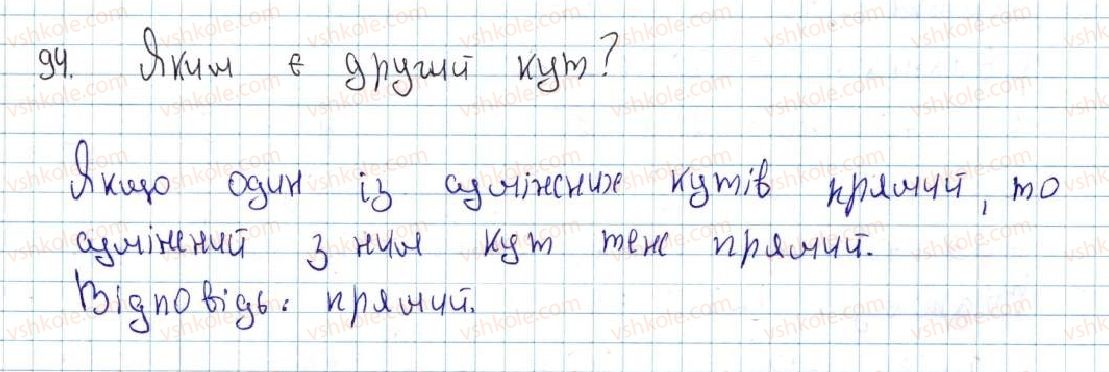 94. Яким є другий кут?
Якщо один із суміжних кутів прямий, то
суміжний з ним кут теж прямий.
Відповідь: прямий.